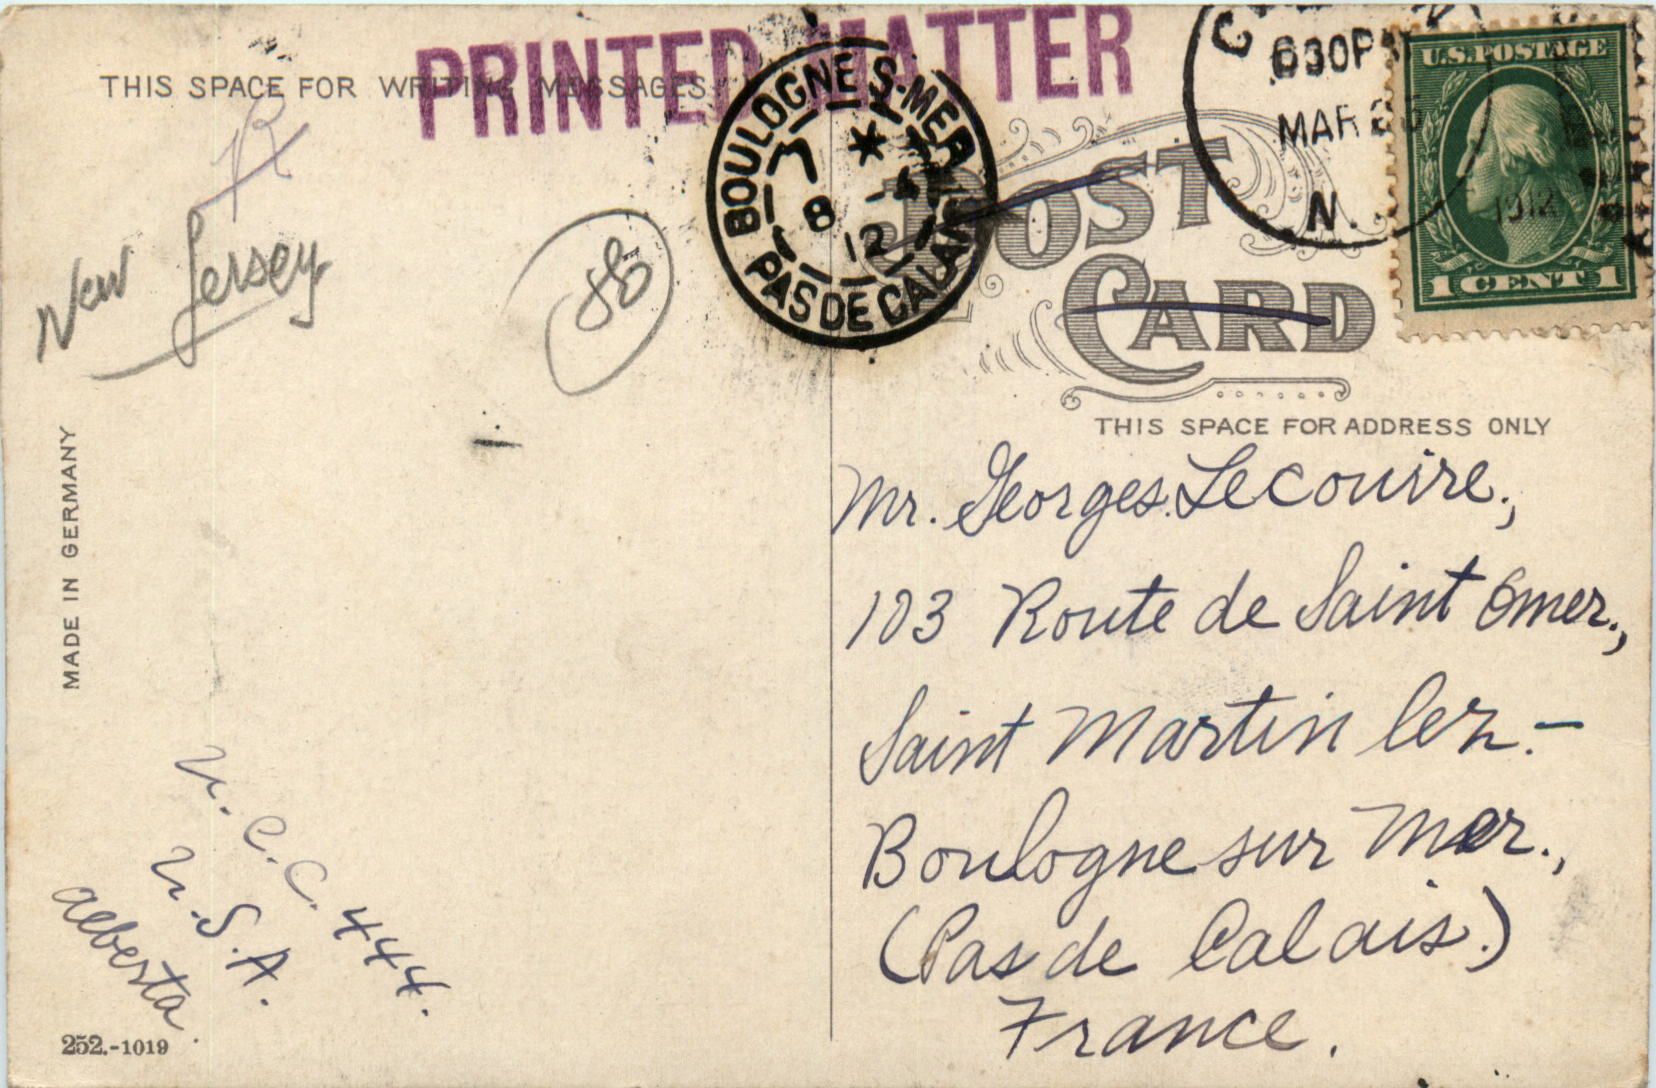 PRINTED MATTER
THIS SPACE FOR WRITING MESSAGES.
BOULOGNE S-MER
8
12
PAS DE CALAIS
630P
MAR
N.
1912
U.S. POSTAGE
1 CENT 1
POST
CARD
THIS SPACE FOR ADDRESS ONLY
New Jersey
88
MADE IN GERMANY
Mr. Georges Lecouire.,
103 Route de Saint Omer.,
Saint Martin lez.-
Boulogne sur Mer.,
(Pas de Calais.)
France.
U.C.C. 444.
U.S.A.
Alberta.
252.-1019